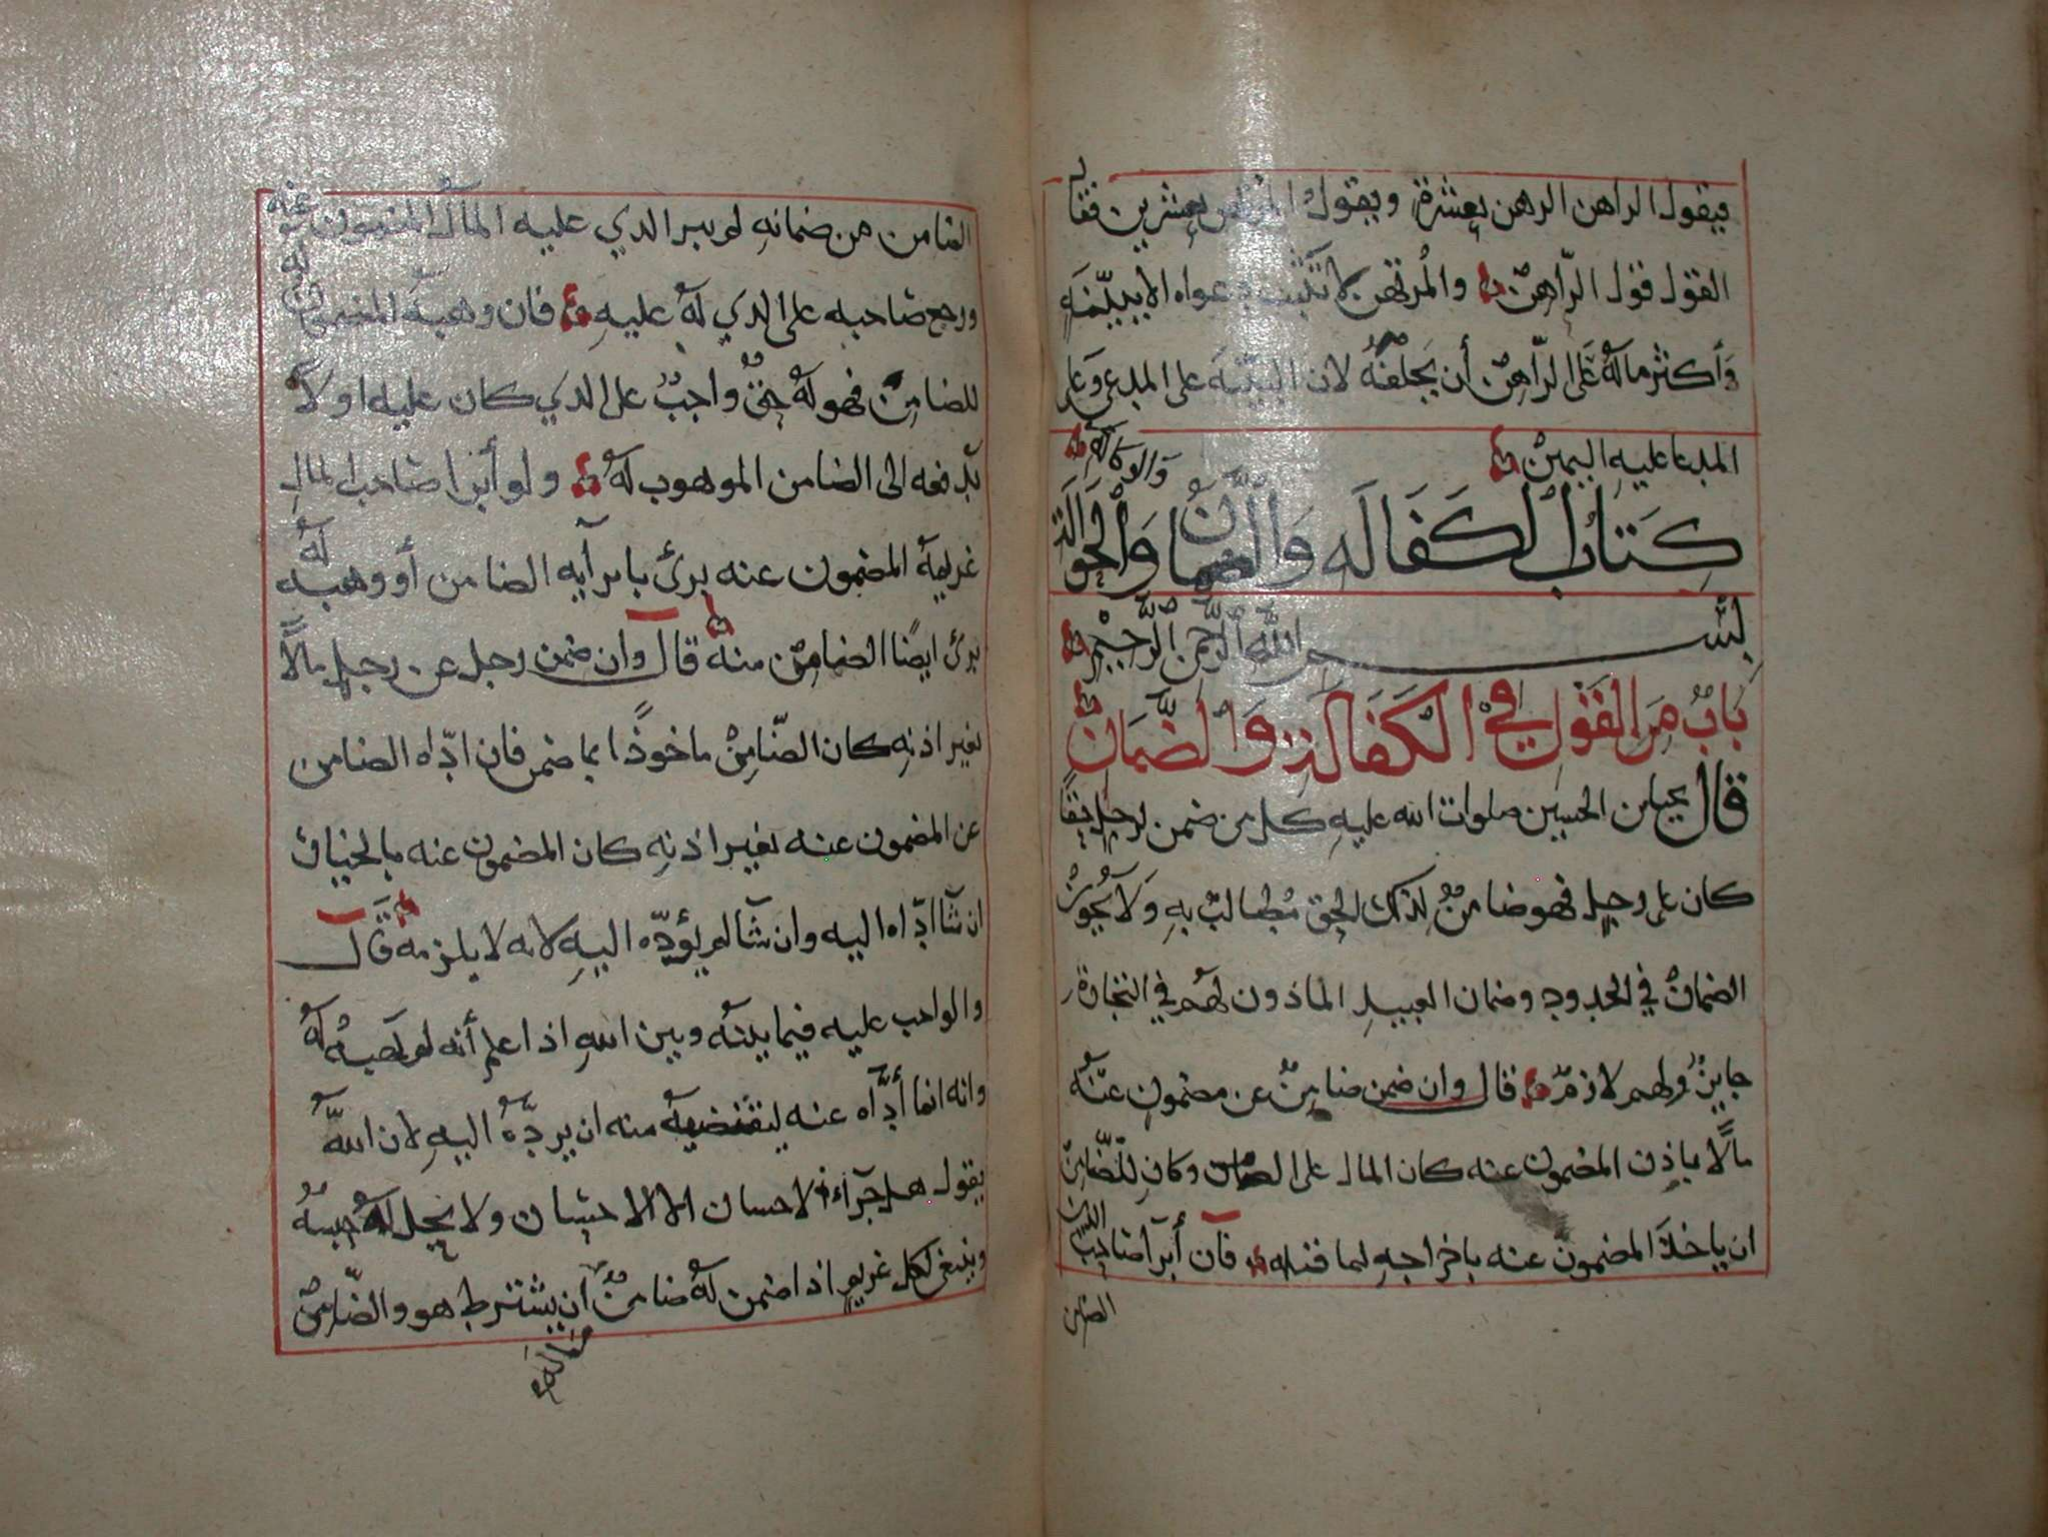 فيقول الراهن الرهن بعشرة ويقول المرتهن بعشرين فقال
القول قول الرّاهن والمُرتهن لا تثبت دعواه الا ببيّنة
وأكثر ما له على الرّاهن أن يحلفه لان البيّنة على المدعي وعلى
المدعا عليه اليمين
كتاب الكفاله والضمان والحوالة
والوكاله
بسم الله الرحمن الرحيم
باب من القول في الكفالة والضمان
قال يحيا بن الحسين صلوات الله عليه كل من ضمن لرجل حقا
كان على رجل فهو ضامن لذلك الحق مطالب به ولا يجوز
الضمان في الحدود وضمان العبيد الماذون لهم في التجارة
جايز ولهم لازم قال وان ضمن ضامن عن مضمون عنه
مالا باذن المضمون عنه كان المال على الضامن وكان للضامن
ان ياخذ المضمون عنه باخراجه لما قبله فان أبرأ صاحب
الدين
الضامن
الضامن من ضمانه لم يبر الذي عليه المال المضمون عنه
ورجع صاحبه على الذي له عليه فان وهبه المضمون له
للضامن فهو له حق واجب على الذي كان عليه اولا
يدفعه الى الضامن الموهوب له ولو أبرا صاحب المال
غريمه المضمون عنه برئ بابرآيه الضامن أو وهبه له
برئ ايضا الضامن منه قال وان ضمن رجل عن رجل مالاً
بغير اذنه كان الضّامن ماخوذا بما ضمن فان ادّاه الضامن
عن المضمون عنه بغير اذنه كان المضمون عنه بالخيار
ان شآ ادّاه اليه وان شآ لم يؤدّه اليه لانه لا يلزمه قال
والواجب عليه فيما بينه وبين الله اذا علم أنه لم يهبه له
وانه انما أدّاه عنه ليقتضيه منه ان يردّه اليه لان الله
يقول هل جزآء الاحسان الا الاحسان ولا يحل له حبسه
وينبغي لكل غريم اذا ضمن له ضامن أن يشترط هو والضّامن